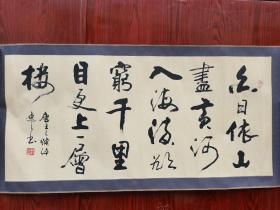 白日依山
盡黃河
入海流欲
窮千里
目更上一層
樓
唐王之渙诗
书